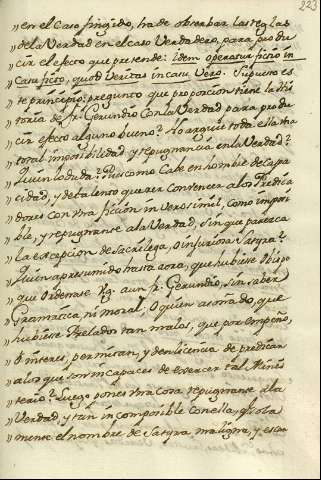 223
" en el Caso fingido, ha de observar las reglas
" de la Verdad en el caso Verdadero, para produ
" cir el efecto que pretende: idem operatur fictio in
" Casu ficto, quod Veritas in casu Vero. Supuesto es
" te principio; pregunto que proporcion tiene la His
" toria de Fr. Gerundio Con la Verdad para produ
" cir efecto alguno bueno? No arguie toda ella Una
" total imposibilidad, y repugnancia en la Verdad?
" Quien lo duda? Pues como Cabe en hombre de Capa
" cidad, y de talento querer Convencer a los Predica
" dores con Una ficcion inverosimil, como imposi
" ble, y repugnante a la Verdad, sin que padezca
" la excepcion de Sacrilega, o injuriosa Satyra?
" Quien a presumido hasta aora, que hubiese Obispo
" que Ordenase a un Fr. Gerundio, sin saber
" Gramatica, ni moral, O quien asoñado, que
" hubiese Prelados tan malos, que por empeño,
" O interes, permitan, y den licencia de predicar
" a los que son incapaces de exercer tal Minis
" terio? Luego pones Una cosa repugnante a la
" Verdad, y tan incomposible con ella, q. sola
" mente el nombre de Satyra maligna, y escan